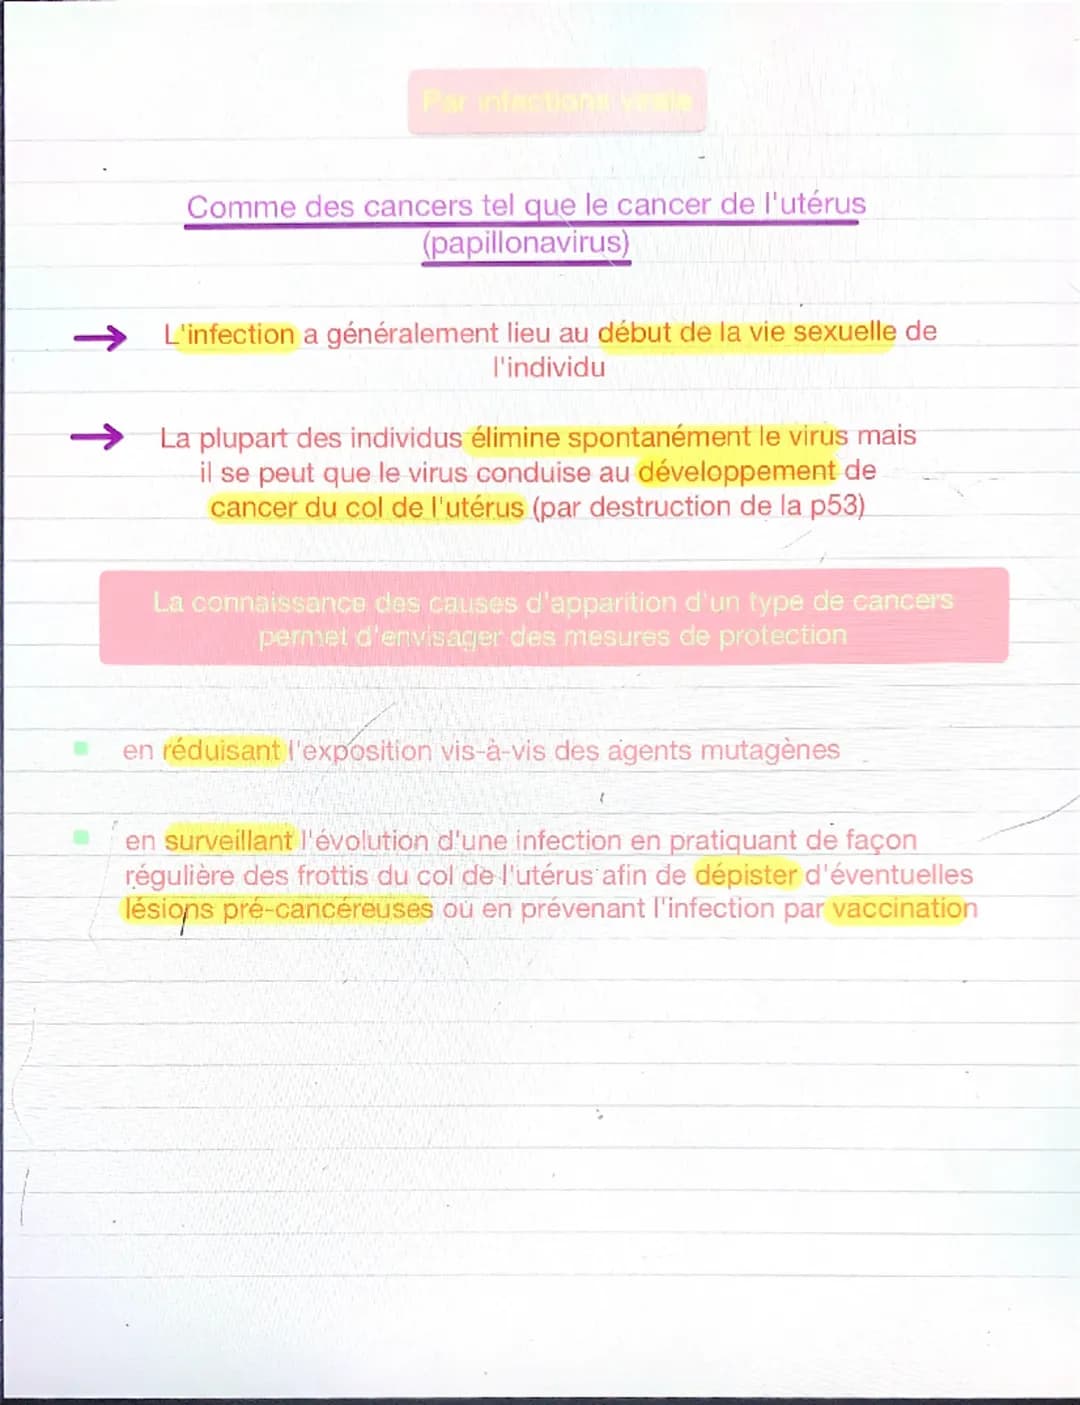 Par infections virale
Comme des cancers tel que le cancer de l'utérus
(papillonavirus)
→ L'infection a généralement lieu au début de la vie sexuelle de
l'individu
→ La plupart des individus élimine spontanément le virus mais
il se peut que le virus conduise au développement de
cancer du col de l'utérus (par destruction de la p53)
La connaissance des causes d'apparition d'un type de cancers
permet d'envisager des mesures de protection
en réduisant l'exposition vis-à-vis des agents mutagènes
en surveillant l'évolution d'une infection en pratiquant de façon
régulière des frottis du col de l'utérus afin de dépister d'éventuelles
lésions pré-cancéreuses ou en prévenant l'infection par vaccination